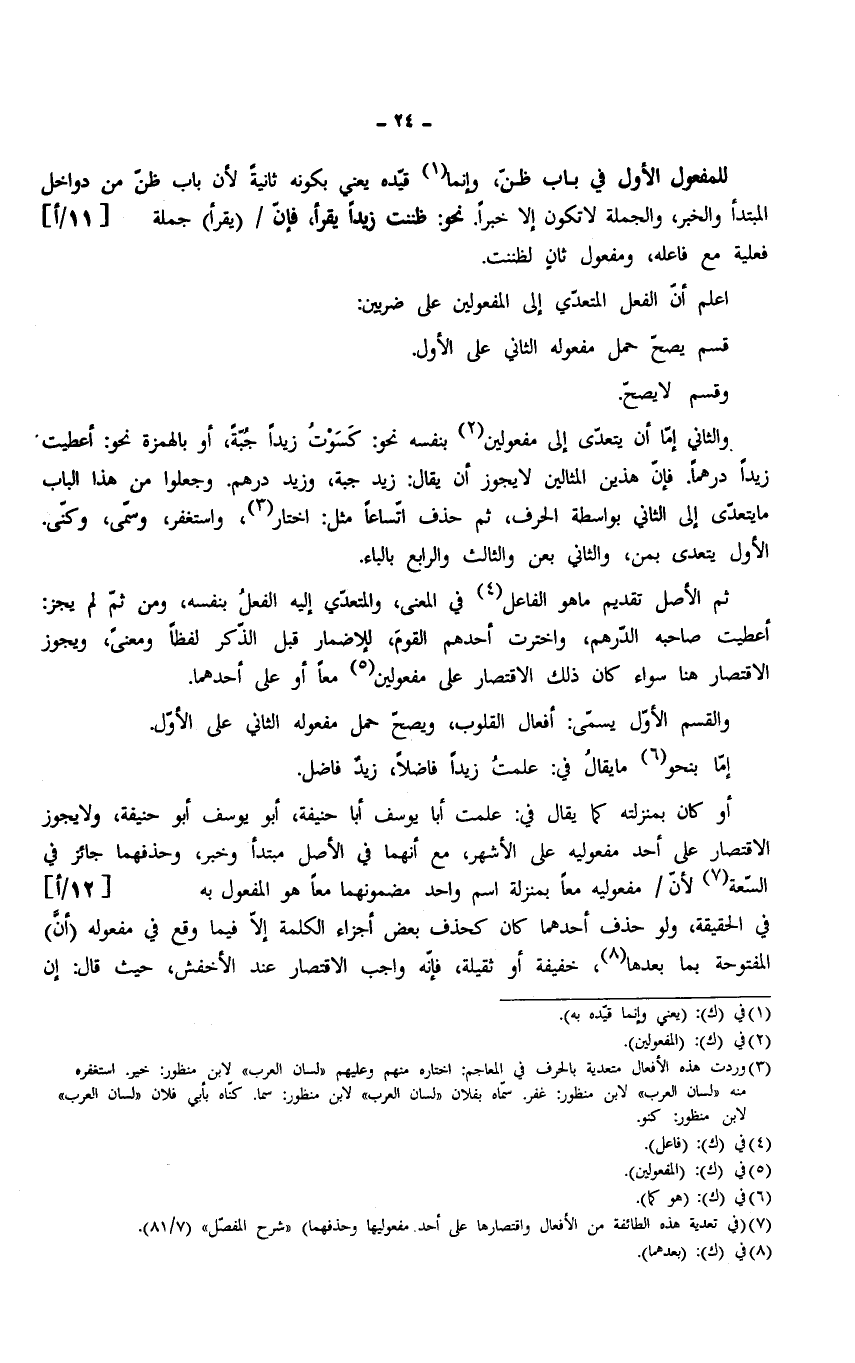 - ٢٤ -
للمفعول الأول في باب ظنّ، وإنما(١) قيّده يعني بكونه ثانيةً لأن باب ظنّ من دواخل
المبتدأ والخبر، والجملة لاتكون إلا خبراً. نحو: ظننت زيداً يقرأ، فإنّ / (يقرأ) جملة [١١/أ]
فعلية مع فاعله، ومفعول ثانٍ لظننت.
اعلم أنّ الفعل المتعدّي إلى المفعولين على ضربين:
قسم يصحّ حمل مفعوله الثاني على الأول.
وقسم لايصحّ.
والثاني إمّا أن يتعدّى إلى مفعولين(٢) بنفسه نحو: كَسَوْتُ زيداً جُبّةً، أو بالهمزة نحو: أعطيت
زيداً درهماً. فإنّ هذين المثالين لايجوز أن يقال: زيد جبة، وزيد درهم. وجعلوا من هذا الباب
مايتعدّى إلى الثاني بواسطة الحرف، ثم حذف اتّساعاً مثل: اختار(٣)، واستغفر، وسمّى، وكنّى.
الأول يتعدى بمن، والثاني بعن والثالث والرابع بالباء.
ثم الأصل تقديم ماهو الفاعل(٤) في المعنى، والمتعدّي إليه الفعلُ بنفسه، ومن ثمّ لم يجز:
أعطيت صاحبه الدّرهم، واخترت أحدهم القومَ، للإضمار قبل الذّكر لفظاً ومعنىً، ويجوز
الاقتصار هنا سواء كان ذلك الاقتصار على مفعولين(٥) معاً أو على أحدهما.
والقسم الأوّل يسمّى: أفعال القلوب، ويصحّ حمل مفعوله الثاني على الأوّل.
إمّا بنحو(٦) مايقالُ في: علمتُ زيداً فاضلاً، زيدٌ فاضل.
أو كان بمنزلته كما يقال في: علمت أبا يوسف أبا حنيفة، أبو يوسف أبو حنيفة، ولايجوز
الاقتصار على أحد مفعوليه على الأشهر، مع أنهما في الأصل مبتدأ وخبر، وحذفهما جائز في
السّعة(٧) لأنّ / مفعوليه معاً بمنزلة اسم واحد مضمونهما معاً هو المفعول به [١٢/أ]
في الحقيقة، ولو حذف أحدهما كان كحذف بعض أجزاء الكلمة إلاّ فيما وقع في مفعوله (أنَّ)
المفتوحة بما بعدها(٨)، خفيفة أو ثقيلة، فإنّه واجب الاقتصار عند الأخفش، حيث قال: إن
(١) في (ك): (يعني وإنما قيّده به).
(٢) في (ك): (المفعولين).
(٣) وردت هذه الأفعال متعدية بالحرف في المعاجم: اختاره منهم وعليهم «لسان العرب» لابن منظور: خير. استغفره
منه «لسان العرب» لابن منظور: غفر. سمّاه بفلان «لسان العرب» لابن منظور: سما. كنّاه بأبي فلان «لسان العرب»
لابن منظور: كنو.
(٤) في (ك): (فاعل).
(٥) في (ك): (المفعولين).
(٦) في (ك): (هو كما).
(٧) (في تعدية هذه الطائفة من الأفعال واقتصارها على أحد مفعوليها وحذفهما) «شرح المفصّل» (٨١/٧).
(٨) في (ك): (بعدهما).